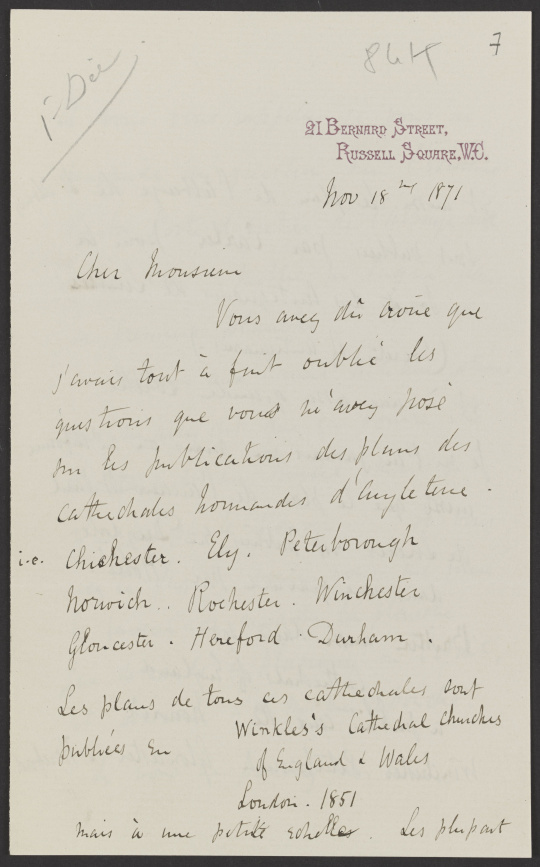 7
844
1e Déc.
21 BERNARD STREET,
RUSSELL SQUARE, W.C.
Nov 18th 1871
Cher Monsieur
Vous avez dû croire que
j'avais tout à fait oublié les
questions que vous m'avez posé
sur les publications des plans des
cathedrales normandes d'Angleterre.
i.e. Chichester. Ely. Peterborough
Norwich. Rochester. Winchester
Gloucester. Hereford. Durham.
Les plans de tous ces cathedrales sont
publiées en Winkles's Cathedral churches
of England & Wales
London. 1851
mais à une petite echelle. Les plupart